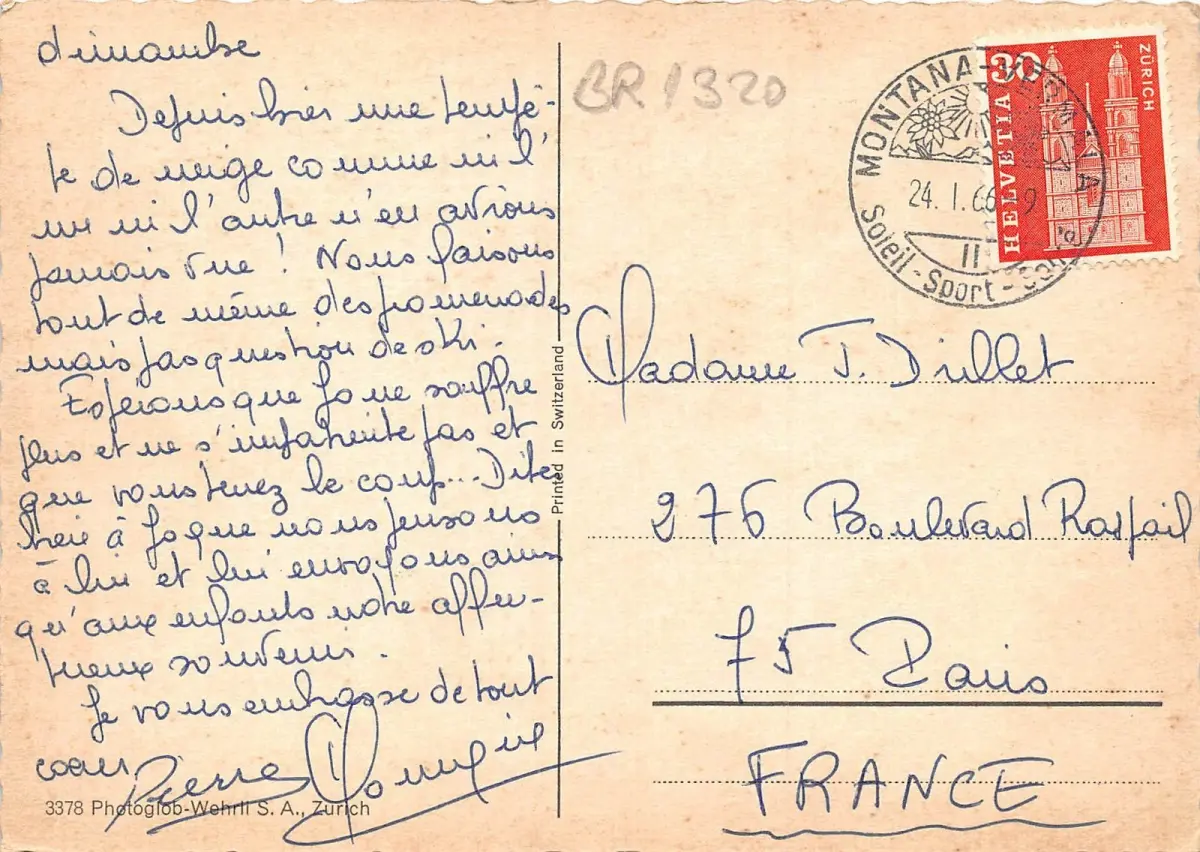 dimanche
Depuis hier une tempê-
te de neige comme ni l'
un ni l'autre n'en avions
jamais vue ! Nous faisons
tout de même des promenades
mais pas question de ski.
Espérons que Jo ne souffre
plus et ne s'impatiente pas et
que vous tenez le coup... Dites
à Jo que nous pensons
à lui et lui envoyons ainsi
qu'aux enfants notre affec-
tueux souvenir.
Je vous embrasse de tout
coeur Pierre
3378 Photoglob-Wehrli S. A., Zürich
Printed in Switzerland
BR 1320
MONTANA-VERMALA
24. 1. 66 - 9
Soleil - Sport -
HELVETIA 30
ZÜRICH
Madame J. Drillet
276 Boulevard Raspail
75 Paris
FRANCE